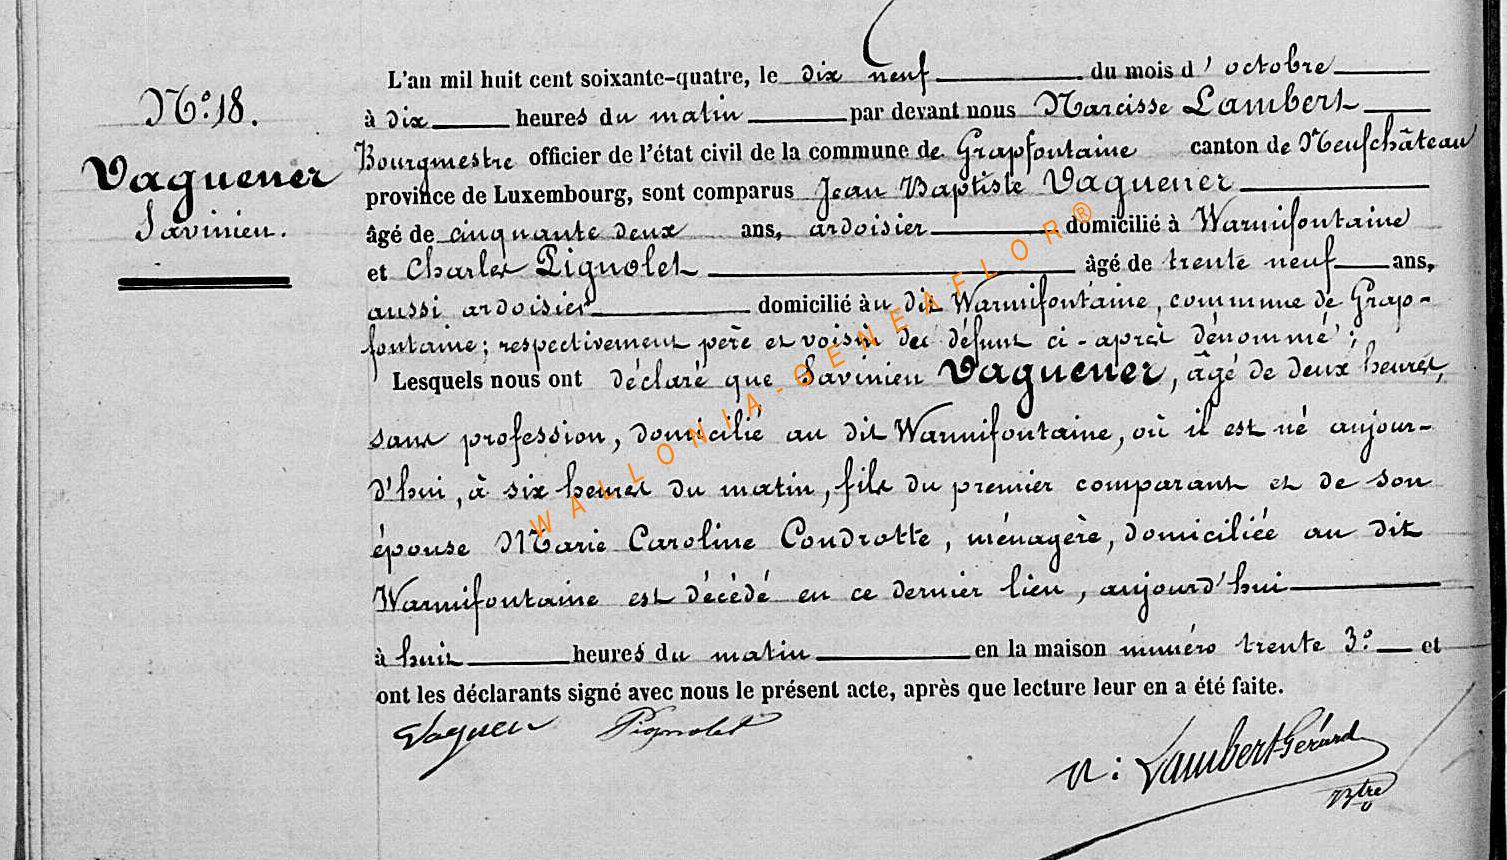 N° 18.
Vaguener
Savinien.
L'an mil huit cent soixante-quatre, le dix neuf du mois d'octobre
à dix heures du matin par devant nous Narcisse Lambert
Bourgmestre officier de l'état civil de la commune de Grapfontaine canton de Neufchâteau
province de Luxembourg, sont comparus Jean Baptiste Vaguener
âgé de cinquante deux ans, ardoisier domicilié à Warmifontaine
et Charles Pignolet âgé de trente neuf ans,
aussi ardoisier domicilié au dit Warmifontaine, commune de Grap-
fontaine; respectivement père et voisin du défunt ci-après dénommé;
Lesquels nous ont déclaré que Savinien Vaguener, âgé de deux heures,
sans profession, domicilié au dit Warmifontaine, où il est né aujour-
d'hui, à six heures du matin, fils du premier comparant et de son
épouse Marie Caroline Condrotte, ménagère, domiciliée au dit
Warmifontaine est décédé en ce dernier lieu, aujourd'hui
à huit heures du matin en la maison numéro trente 3° et
ont les déclarants signé avec nous le présent acte, après que lecture leur en a été faite.
Vaguener Pignolet
N: Lambert-Gérard
Btre
WALLONIA-GENEAFLOR®